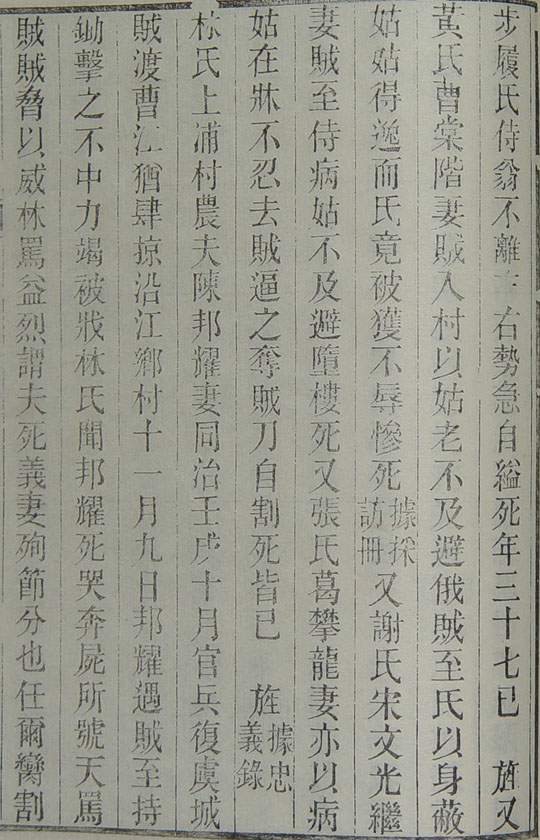 步履氏侍翁不離右勢急自縊死年三十七已 旌又
黃氏曹棠階妻賊入村以姑老不及避俄賊至氏以身蔽
姑姑得逸而氏竟被獲不辱慘死據採訪冊又謝氏宋文光繼
妻賊至侍病姑不及避墮樓死又張氏葛攀龍妻亦以病
姑在牀不忍去賊逼之奪賊刀自割死皆已 旌據忠義錄
林氏上浦村農夫陳邦耀妻同治壬戌十月官兵復虞城
賊渡曹江猶肆掠沿江鄉村十一月九日邦耀遇賊至持
鋤擊之不中力竭被戕林氏聞邦耀死哭奔屍所號天罵
賊賊脅以威林罵益烈謂夫死義妻殉節分也任爾臠割